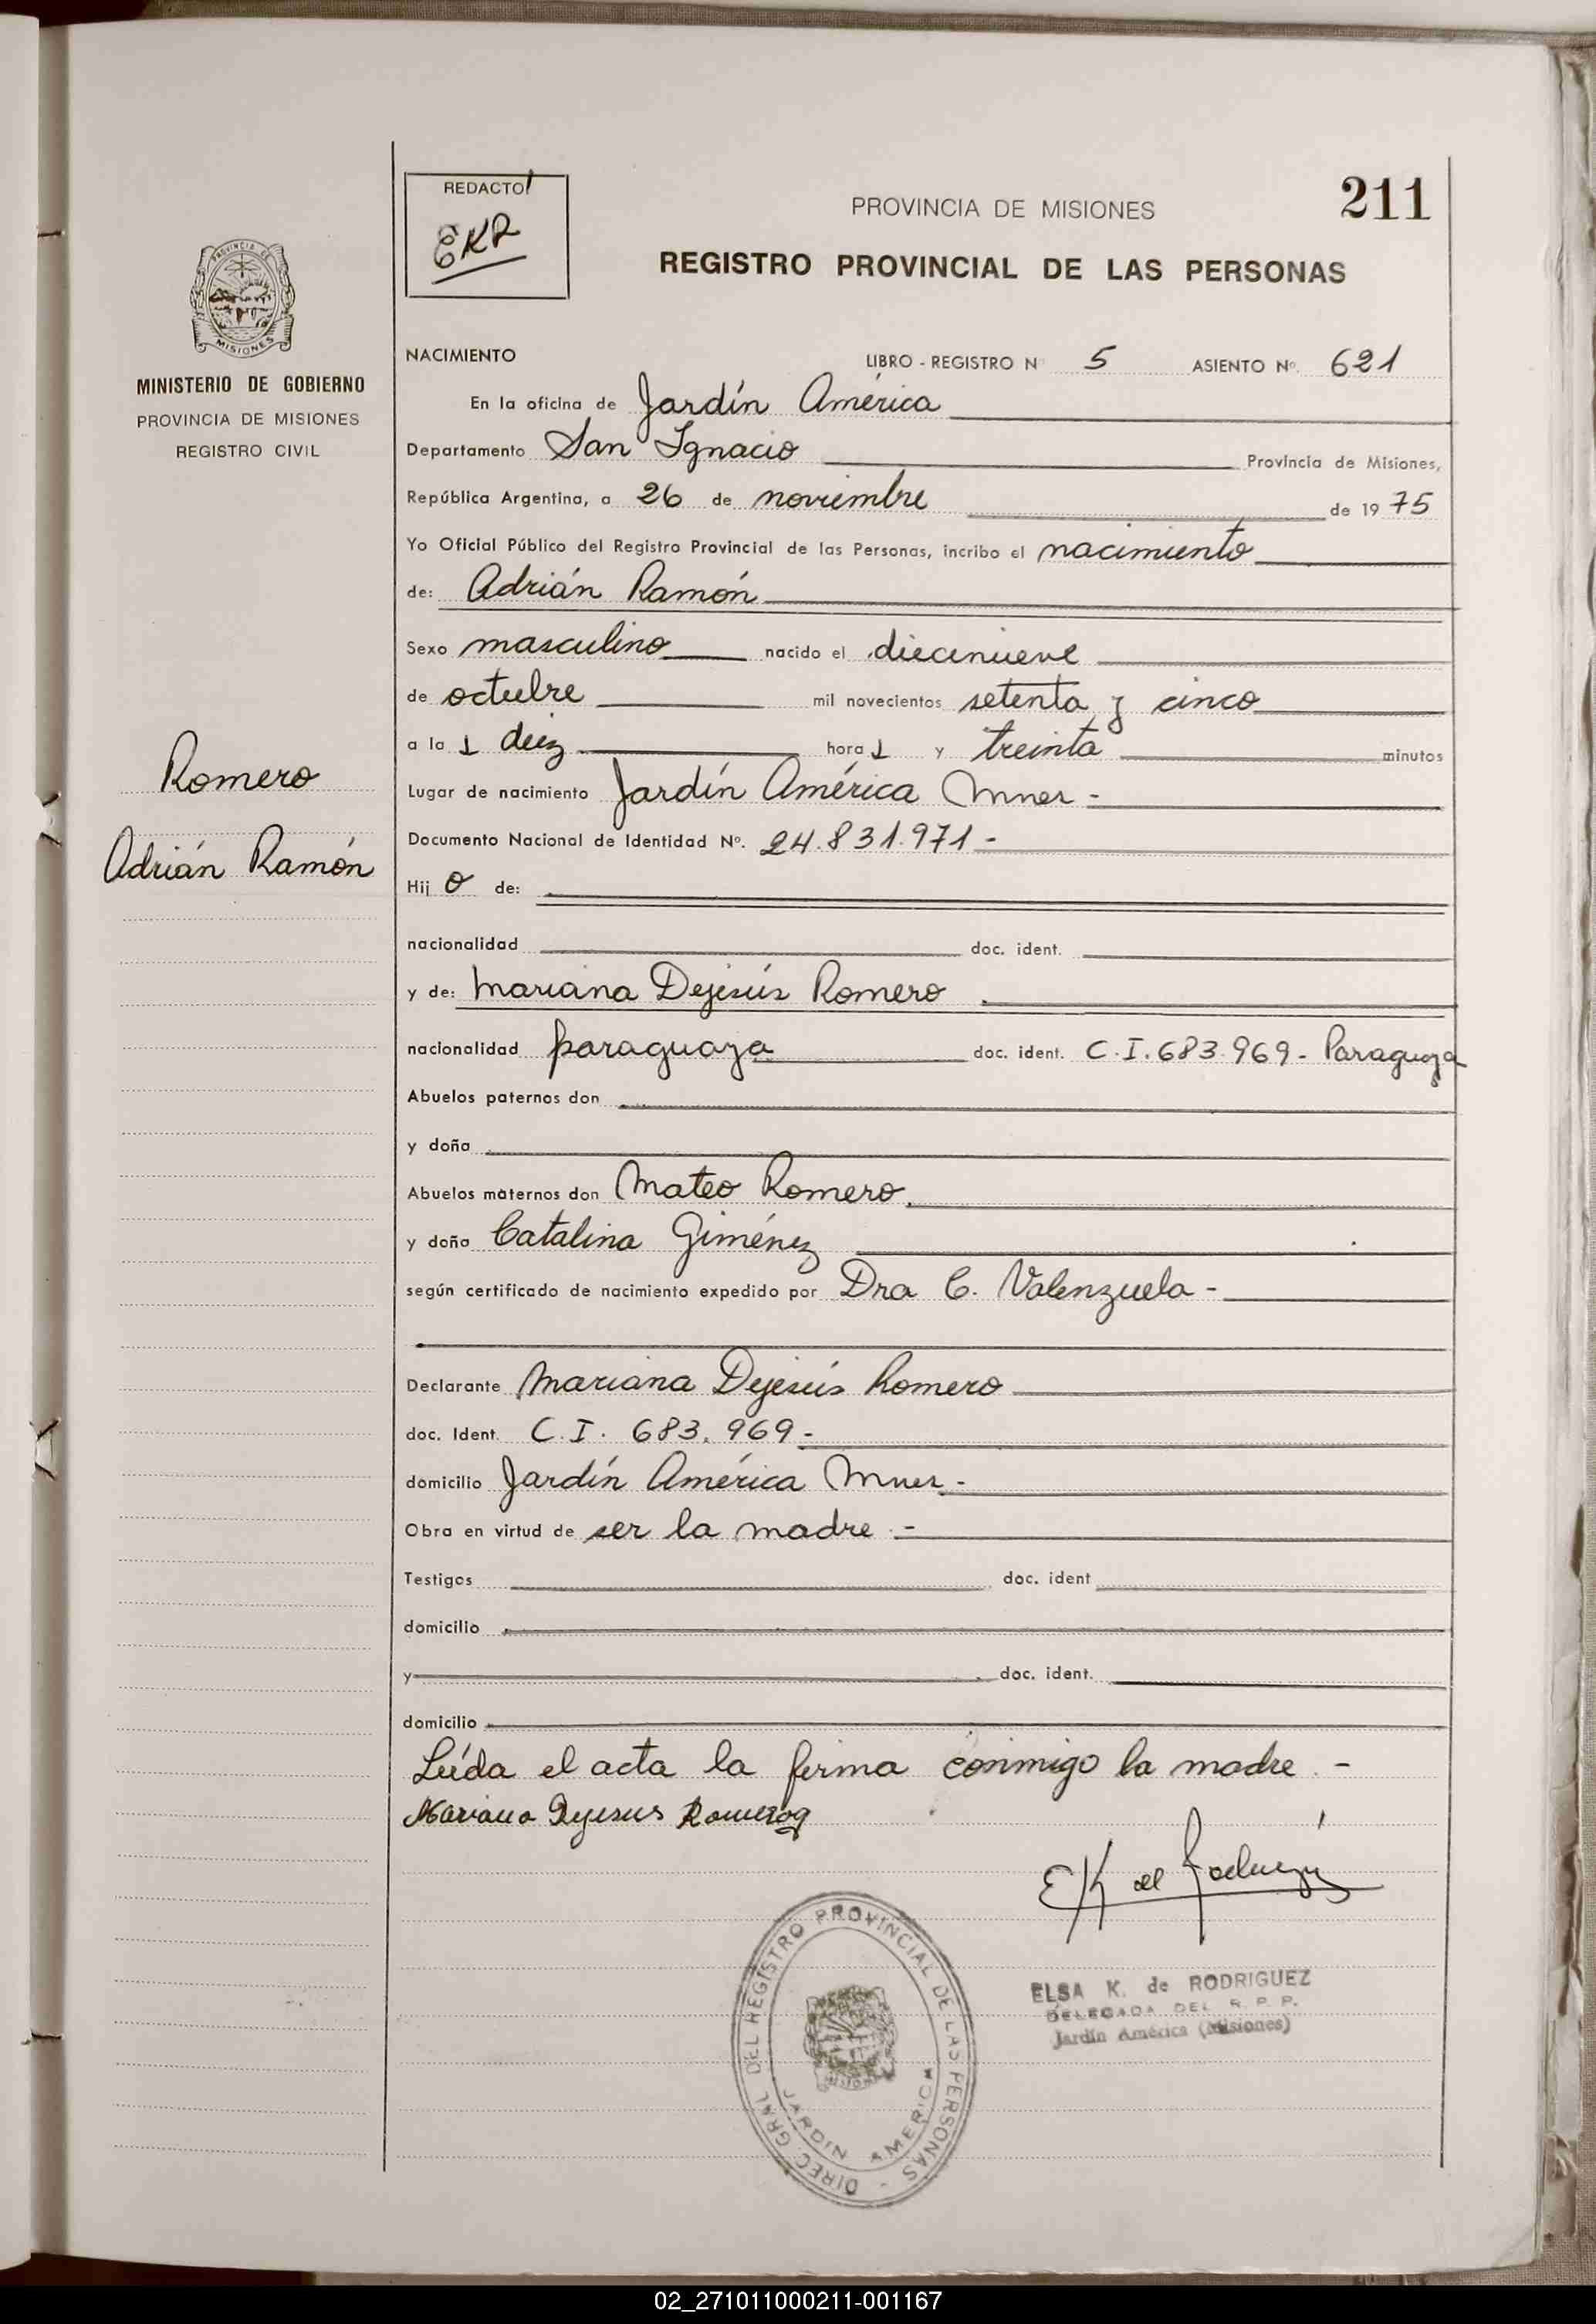 REDACTO
EKR
PROVINCIA DE MISIONES
211
REGISTRO PROVINCIAL DE LAS PERSONAS
PROVINCIA DE
MISIONES
MINISTERIO DE GOBIERNO
PROVINCIA DE MISIONES
REGISTRO CIVIL
NACIMIENTO LIBRO - REGISTRO N° 5 ASIENTO Nº. 621
En la oficina de Jardín América
Departamento San Ignacio Provincia de Misiones,
República Argentina, a 26 de noviembre de 1975
Yo Oficial Público del Registro Provincial de las Personas, incribo el nacimiento
de: Adrián Ramón
Sexo masculino nacido el diecinueve
de octubre mil novecientos setenta y cinco
a la s diez hora s y treinta minutos
Romero
Adrián Ramón
Lugar de nacimiento Jardín América Mnes -
Documento Nacional de Identidad Nº. 24.831.971 -
Hij o de:
nacionalidad doc. ident.
y de: Mariana Dejesús Romero
nacionalidad paraguaya doc. ident. C.I. 683.969 - Paraguaya
Abuelos paternos don
y doña
Abuelos maternos don Mateo Romero
y doña Catalina Giménez
según certificado de nacimiento expedido por Dra C. Valenzuela -
Declarante Mariana Dejesús Romero
doc. Ident. C.I. 683.969 -
domicilio Jardín América Mnes -
Obra en virtud de ser la madre -
Testigos doc. ident
domicilio
y doc. ident.
domicilio
Leída el acta la firma conmigo la madre -
Mariana Dejesus Romero
EK de Rodríguez
DIREC. GRAL DEL REGISTRO PROVINCIAL DE LAS PERSONAS -
JARDIN AMERICA
ELSA K. de RODRIGUEZ
DELEGADA DEL R. P. P.
Jardín América (Misiones)
02_271011000211-001167